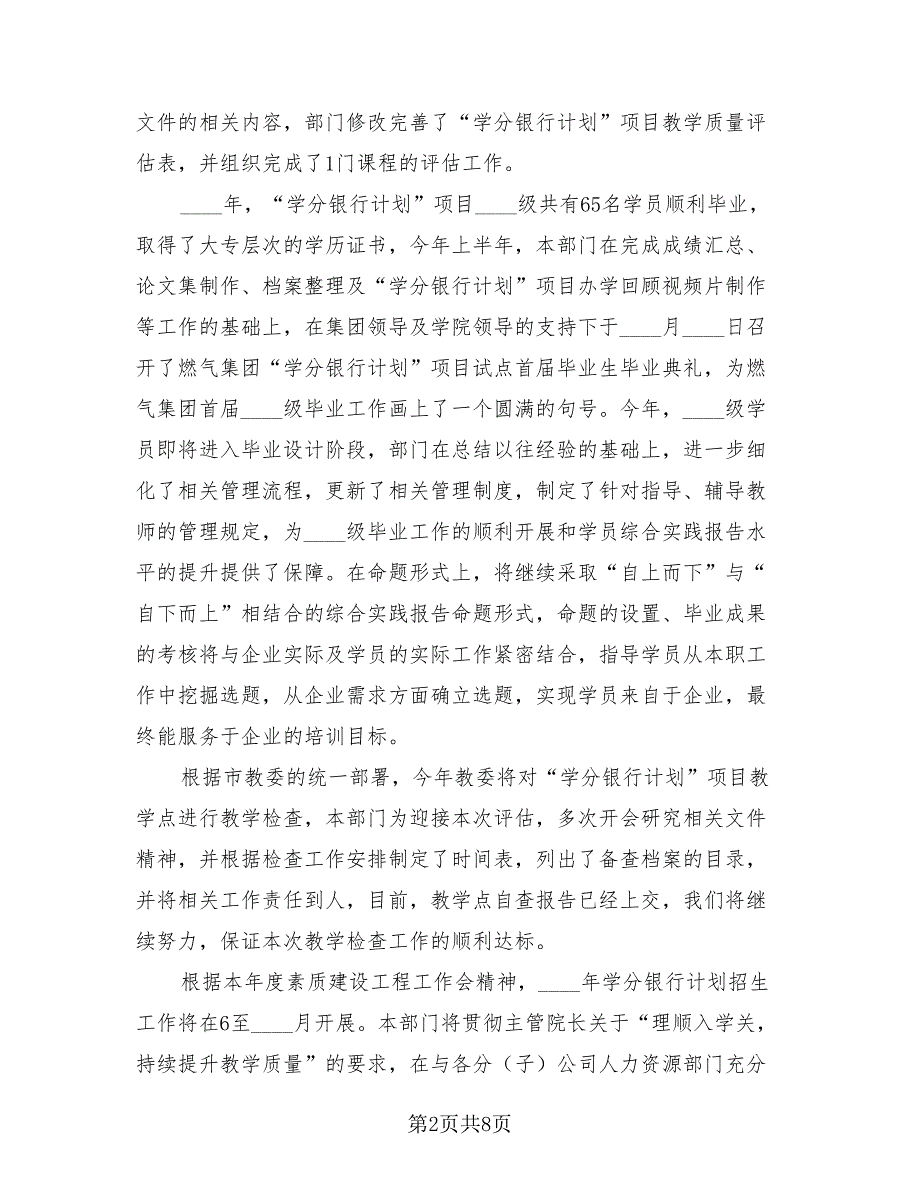 文件的相关内容，部门修改完善了“学分银行计划”项目教学质量评
估表，并组织完成了1门课程的评估工作。
____年，“学分银行计划”项目____级共有65名学员顺利毕业，
取得了大专层次的学历证书，今年上半年，本部门在完成成绩汇总、
论文集制作、档案整理及“学分银行计划”项目办学回顾视频片制作
等工作的基础上，在集团领导及学院领导的支持下于____月____日召
开了燃气集团“学分银行计划”项目试点首届毕业生毕业典礼，为燃
气集团首届____级毕业工作画上了一个圆满的句号。今年，____级学
员即将进入毕业设计阶段，部门在总结以往经验的基础上，进一步细
化了相关管理流程，更新了相关管理制度，制定了针对指导、辅导教
师的管理规定，为____级毕业工作的顺利开展和学员综合实践报告水
平的提升提供了保障。在命题形式上，将继续采取“自上而下”与“
自下而上”相结合的综合实践报告命题形式，命题的设置、毕业成果
的考核将与企业实际及学员的实际工作紧密结合，指导学员从本职工
作中挖掘选题，从企业需求方面确立选题，实现学员来自于企业，最
终能服务于企业的培训目标。
根据市教委的统一部署，今年教委将对“学分银行计划”项目教
学点进行教学检查，本部门为迎接本次评估，多次开会研究相关文件
精神，并根据检查工作安排制定了时间表，列出了备查档案的目录，
并将相关工作责任到人，目前，教学点自查报告已经上交，我们将继
续努力，保证本次教学检查工作的顺利达标。
根据本年度素质建设工程工作会精神，____年学分银行计划招生
工作将在6至____月开展。本部门将贯彻主管院长关于“理顺入学关，
持续提升教学质量”的要求，在与各分（子）公司人力资源部门充分
第2页共8页